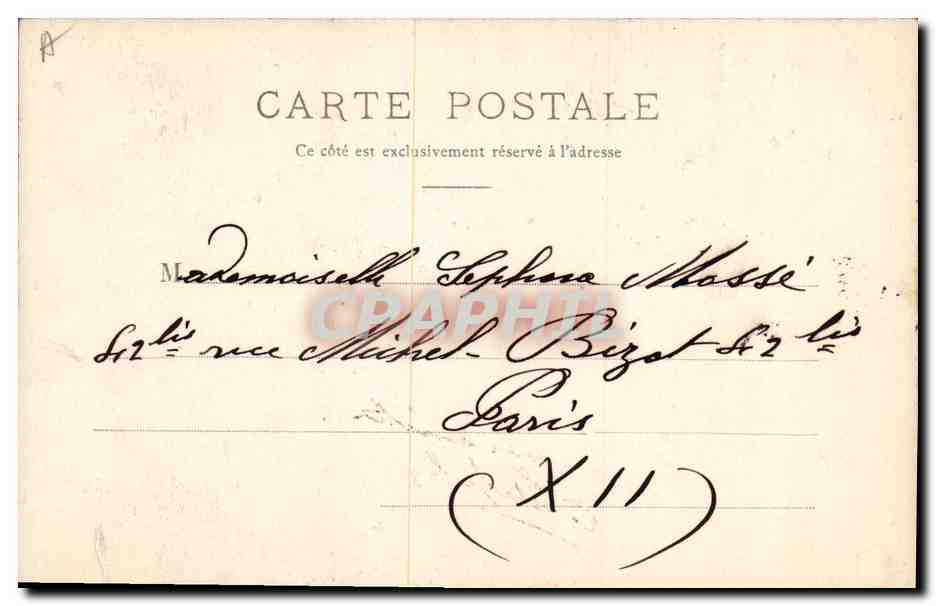 A
CARTE POSTALE
Ce côté est exclusivement réservé à l'adresse
Mademoiselle Sephora Mossé
CPAPHIL
bis rue Michel-Bizot bis
Paris
(XII)